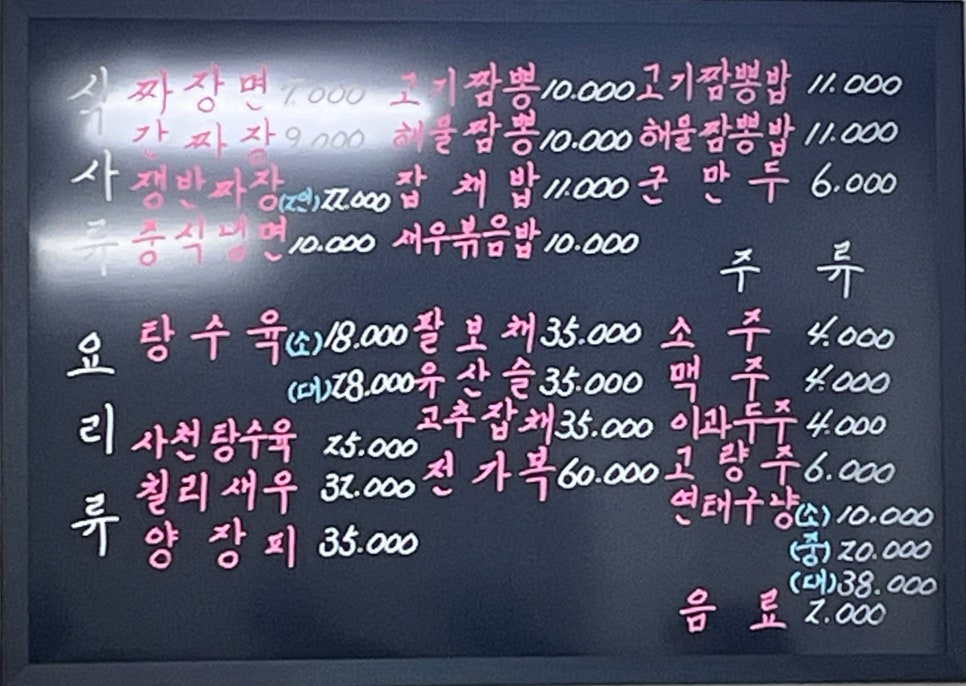 식사류
짜장면 7.000
간짜장 9.000
쟁반짜장 (2인) 22.000
중식냉면 10.000
고기짬뽕 10.000
해물짬뽕 10.000
잡채밥 11.000
새우볶음밥 10.000
고기짬뽕밥 11.000
해물짬뽕밥 11.000
군만두 6.000
요리류
탕수육 (소) 18.000
(대) 28.000
사천탕수육 25.000
칠리새우 32.000
양장피 35.000
팔보채 35.000
유산슬 35.000
고추잡채 35.000
전가복 60.000
주류
소주 4.000
맥주 4.000
이과두주 4.000
고량주 6.000
연태구냥 (소) 10.000
(중) 20.000
(대) 38.000
음료 2.000